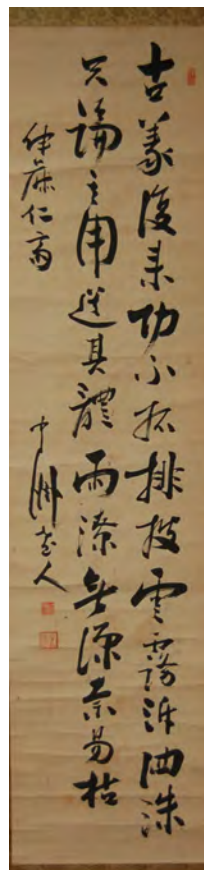 古義復来功不孤排披雲霧泝泗洙
只論其用遺其體雨潦無源亦易枯
伊藤仁斎
中洲老人